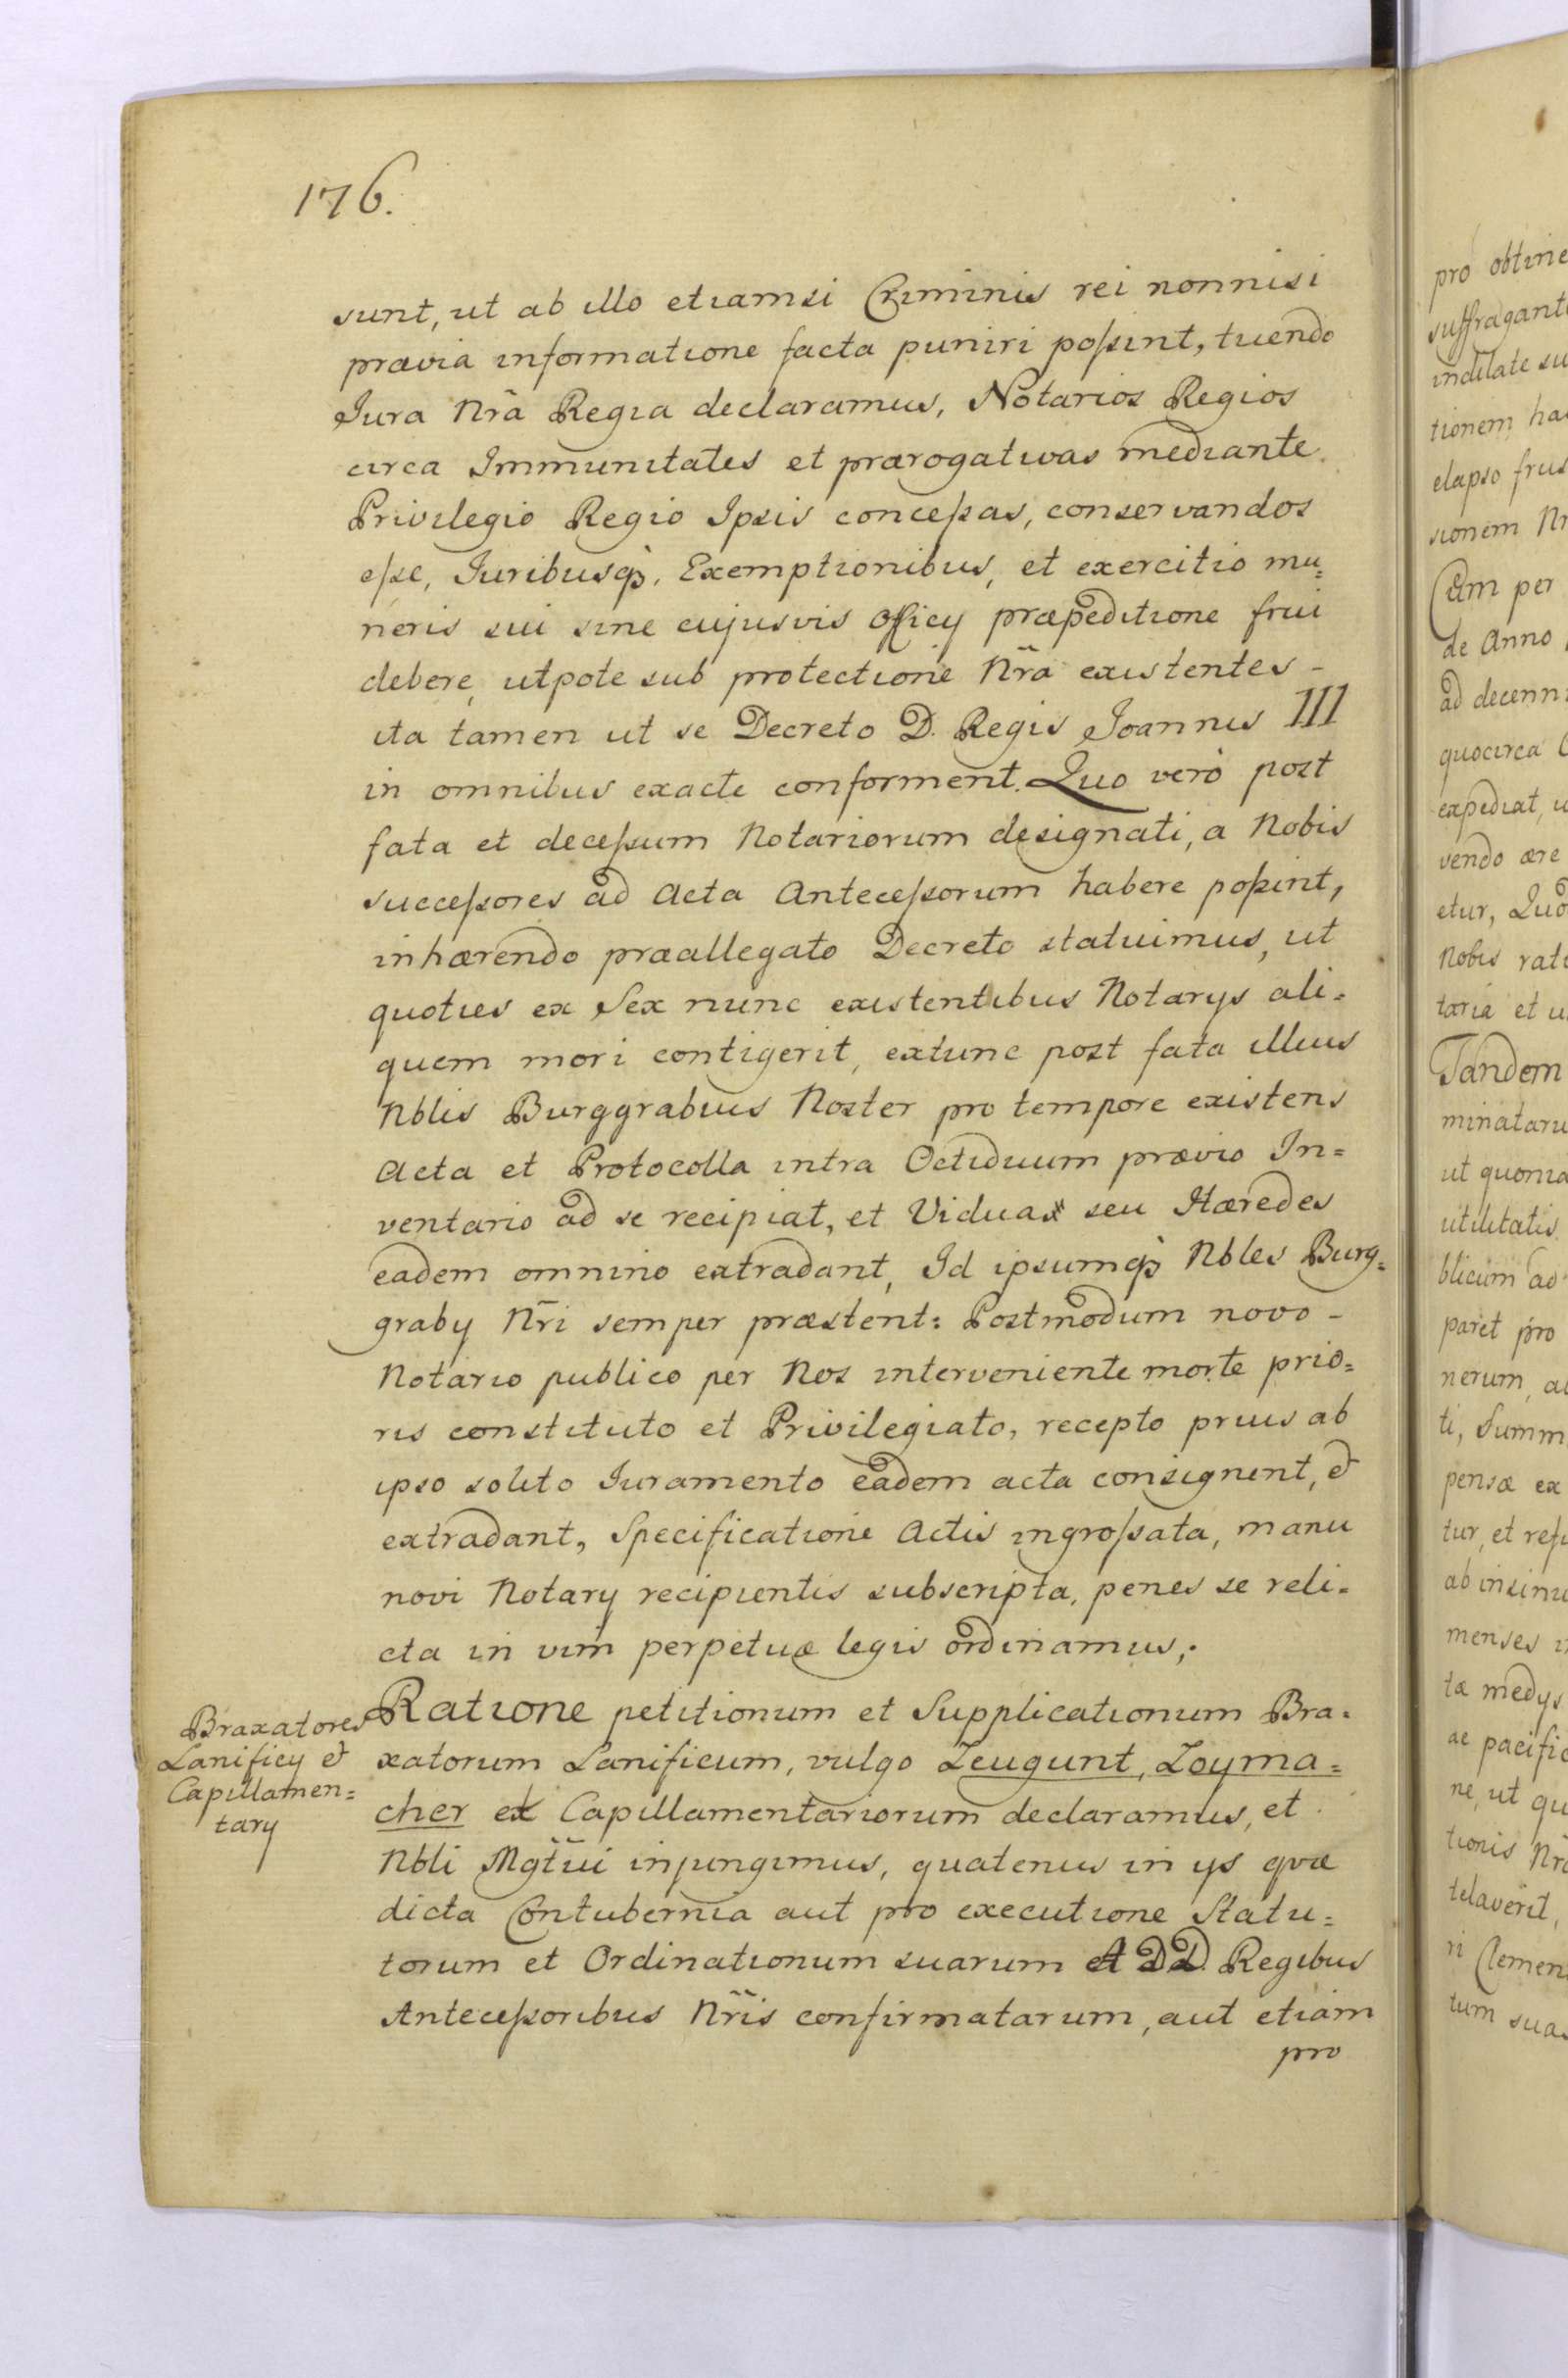 176.
sunt, ut ab illo etiamsi Criminis rei nonnisi
prævia informatione facta puniri poſsint, tuendo
Jura Nr̃a Regia declaramus, Notarios Regios
circa Immunitates et prærogativas mediante
Privilegio Regio Ipsis conceſsas, conservandos
eſse, Juribusq́;, Exemptionibus, et exercitio mu=
neris sui sine cujusvis Officy præpeditione frui
debere, utpote sub protectione Nr̃a existentes -
ita tamen ut se Decreto D. Regis Joannis III
in omnibus exacte conforment. Quo verò post
fata et deceſsum Notariorum designati, a Nobis
succeſsores ad Acta Anteceſsorum habere poſsint,
inhærendo præallegato Decreto statuimus, ut
quoties ex Sex nunc existentibus Notarys ali=
quem mori contigerit, extunc post fata illius
Nblis Burggrabius Noster pro tempore existens
Acta et Protocolla intra Octiduum prævio In=
ventario ad se recipiat, et Viduæ seu Hæredes
eadem omnino extradant, Id ipsumq́; Nbles Burg=
graby Nr̃i semper præstent: Postmodum novo -
Notario publico per Nos interveniente morte prio=
ris constituto et Privilegiato, recepto prius ab
ipso solito Juramento eadem acta consignent, &
extradant, Specificatione Actis ingroſsata, manu
novi Notary recipientis subscripta, penes se reli=
cta in vim perpetuæ legis ordinamus;.
Braxatores
Lanificy &
Capillamen=
tary
Ratione petitionum et Supplicationum Bra=
xatorum Lanificum, vulgo Zeugunt, Zoyma=
cher et Capillamentariorum declaramus, et
Nbli Mgt̃ui injungimus, quatenus in ys quæ
dicta Contubernia aut pro executione Statu=
torum et Ordinationum suarum A DD. Regibus
Anteceſsoribus Nr̃is confirmatarum, aut etiam
pro
pro obtine
suffragant
indilate su
tionem ha
elapso frus
sionem Nr
Cum per
de Anno
ad decenni
quocirca
expediat, u
vendo ære
etur, Quo
Nobis rati
taria et u
Tandem
minataru
ut quonia
utilitatis
blicum ad
paret pro
nerum, a
ti, Summ
pensæ ex
tur, et refu
ab insinu
menses i
tæ medys
ac pacific
ne, ut qu
tionis Nr
telaverit,
ri Clemen
tum sua